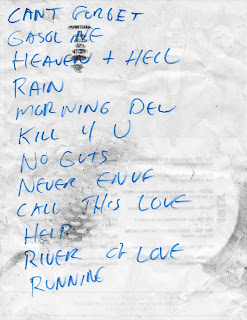 CANT FORGET
GASOLINE
HEAVEN + HELL
RAIN
MORNING DEW
KILL 4 U
NO GUTS
NEVER ENUF
CALL THIS LOVE
HELP
RIVER of LOVE
RUNNINE